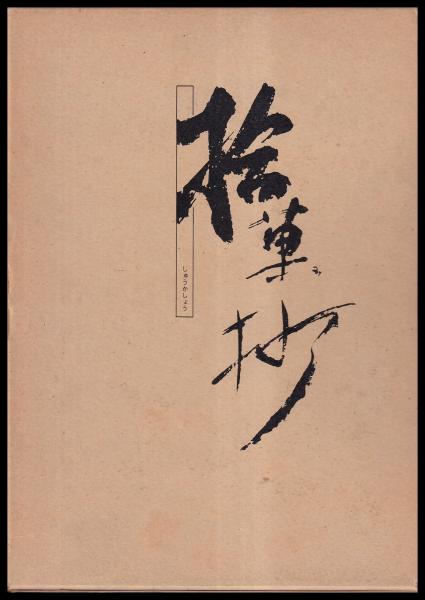 拾菓抄
しゅうかしょう